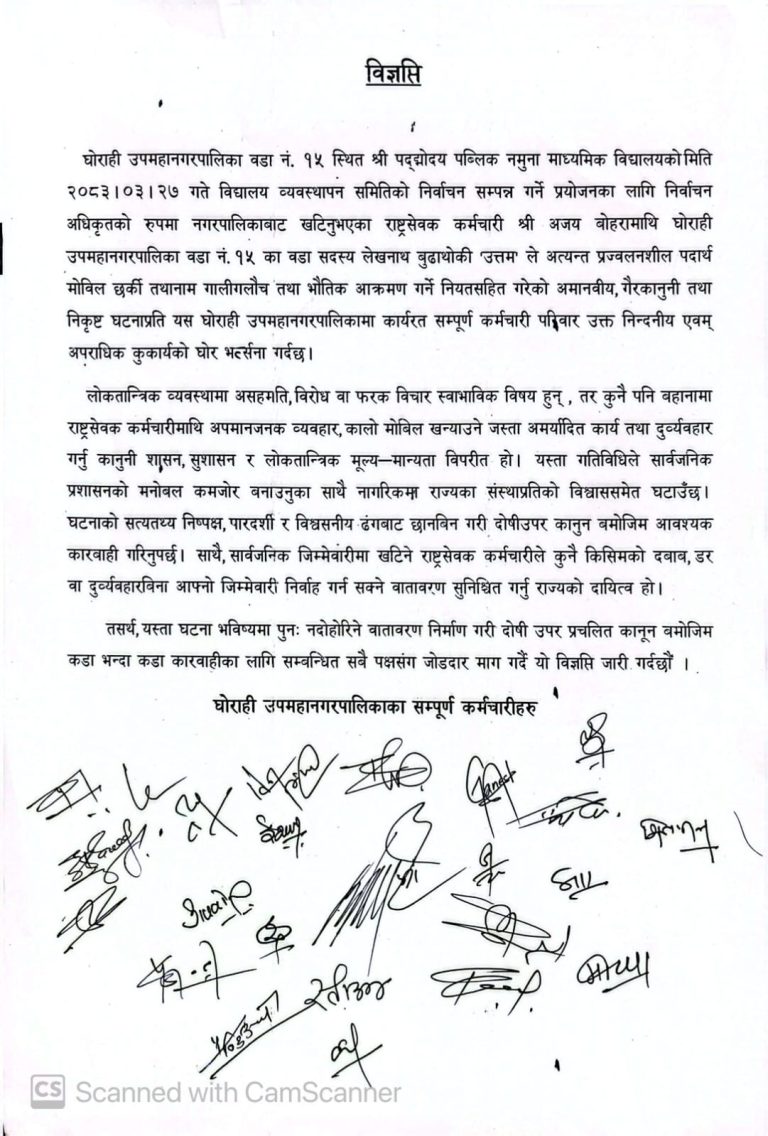 विज्ञप्ति
घोराही उपमहानगरपालिका वडा नं. १५ स्थित श्री पद्द्मोदय पब्लिक नमुना माध्यमिक विद्यालयको मिति
२०८३।०३।२७ गते विद्यालय व्यवस्थापन समितिको निर्वाचन सम्पन्न गर्ने प्रयोजनका लागि निर्वाचन
अधिकृतको रुपमा नगरपालिकाबाट खटिनुभएका राष्ट्रसेवक कर्मचारी श्री अजय बोहरामाथि घोराही
उपमहानगरपालिका वडा नं. १५ का वडा सदस्य लेखनाथ बुढाथोकी 'उत्तम' ले अत्यन्त प्रज्वलनशील पदार्थ
मोविल छर्की तथानाम गालीगलौच तथा भौतिक आक्रमण गर्ने नियतसहित गरेको अमानवीय, गैरकानुनी तथा
निकृष्ट घटनाप्रति यस घोराही उपमहानगरपालिकामा कार्यरत सम्पूर्ण कर्मचारी परिवार उक्त निन्दनीय एवम्
अपराधिक कुकार्यको घोर भर्त्सना गर्दछ।
लोकतान्त्रिक व्यवस्थामा असहमति, विरोध वा फरक विचार स्वाभाविक विषय हुन् , तर कुनै पनि बहानामा
राष्ट्रसेवक कर्मचारीमाथि अपमानजनक व्यवहार, कालो मोविल खन्याउने जस्ता अमर्यादित कार्य तथा दुर्व्यवहार
गर्नु कानुनी शासन, सुशासन र लोकतान्त्रिक मूल्य–मान्यता विपरीत हो। यस्ता गतिविधिले सार्वजनिक
प्रशासनको मनोबल कमजोर बनाउनुका साथै नागरिकमा राज्यका संस्थाप्रतिको विश्वाससमेत घटाउँछ।
घटनाको सत्यतथ्य निष्पक्ष, पारदर्शी र विश्वसनीय ढंगबाट छानबिन गरी दोषीउपर कानुन बमोजिम आवश्यक
कारवाही गरिनुपर्छ। साथै, सार्वजनिक जिम्मेवारीमा खटिने राष्ट्रसेवक कर्मचारीले कुनै किसिमको दबाब, डर
वा दुर्व्यवहारविना आफ्नो जिम्मेवारी निर्वाह गर्न सक्ने वातावरण सुनिश्चित गर्नु राज्यको दायित्व हो।
तसर्थ, यस्ता घटना भविष्यमा पुनः नदोहोरिने वातावरण निर्माण गरी दोषी उपर प्रचलित कानून बमोजिम
कडा भन्दा कडा कारवाहीका लागि सम्वन्धित सबै पक्षसंग जोडदार माग गर्दै यो विज्ञप्ति जारी गर्दछौं ।
घोराही उपमहानगरपालिकाका सम्पूर्ण कर्मचारीहरु
CS Scanned with CamScanner